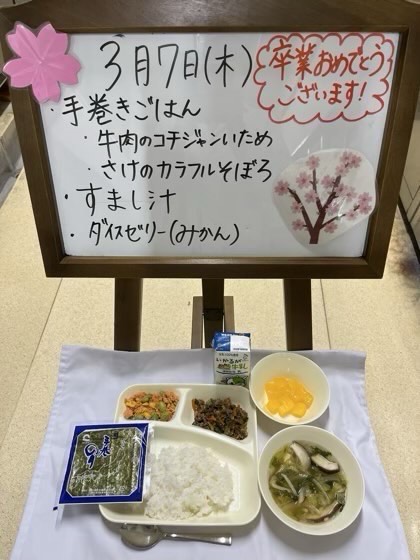 3月7日(木)
卒業おめでとう
ございます!
・手巻きごはん
・牛肉のコチジャンいため
・さけのカラフルそぼろ
・すまし汁
・ダイスゼリー(みかん)
いかるが
牛乳